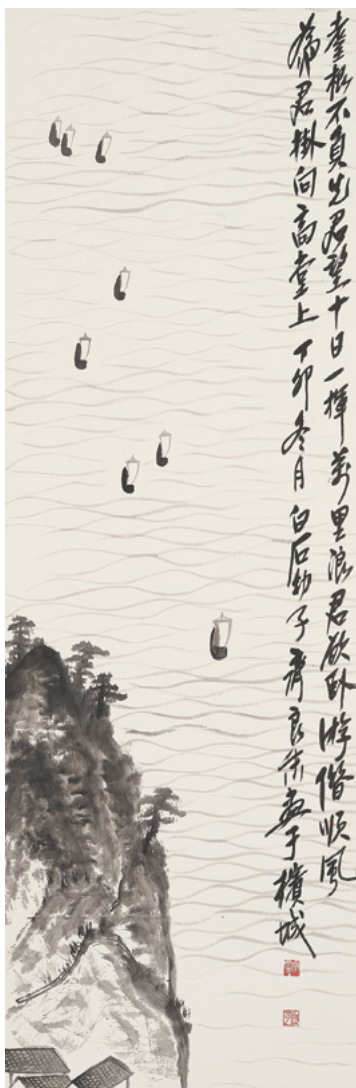 毫枯不負先君望十日一揮萬里浪君欲臥游借順風
為君掛向高堂上丁卯冬月白石幼子齊良末畫于檳城